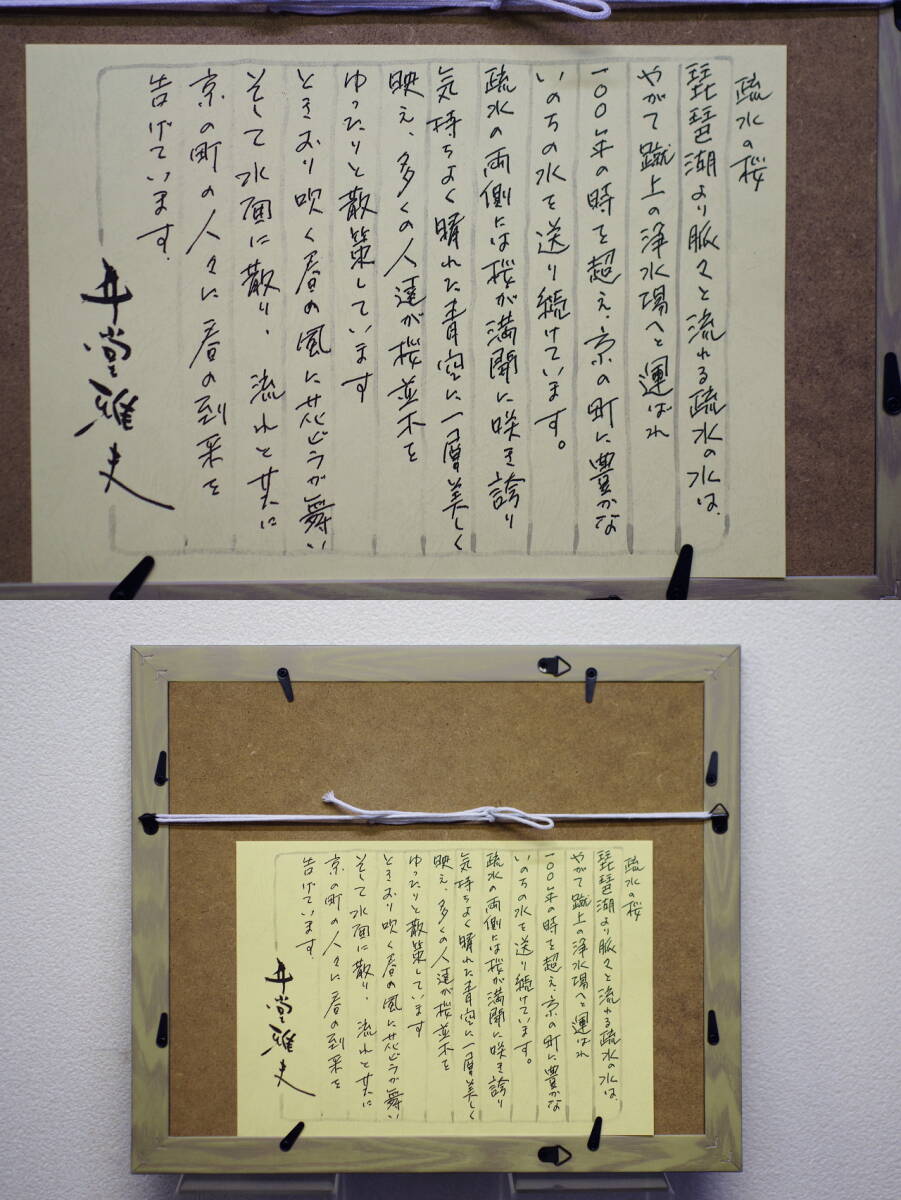 疏水の桜
琵琶湖より脈々と流れる疏水の水は、
やがて蹴上の浄水場へと運ばれ
一〇〇年の時を超え、京の町に豊かな
いのちの水を送り続けています。
疏水の両側には桜が満開に咲き誇り
気持ちよく晴れた青空に一層美しく
映え、多くの人達が桜並木を
ゆったりと散策しています
ときおり吹く春の風に花びらが舞い
そして水面に散り、流れと共に
京の町の人々に春の到来を
告げています。
井堂雅夫
疏水の桜
琵琶湖より脈々と流れる疏水の水は、
やがて蹴上の浄水場へと運ばれ
一〇〇年の時を超え、京の町に豊かな
いのちの水を送り続けています。
疏水の両側には桜が満開に咲き誇り
気持ちよく晴れた青空に一層美しく
映え、多くの人達が桜並木を
ゆったりと散策しています
ときおり吹く春の風に花びらが舞い
そして水面に散り、流れと共に
京の町の人々に春の到来を
告げています。
井堂雅夫